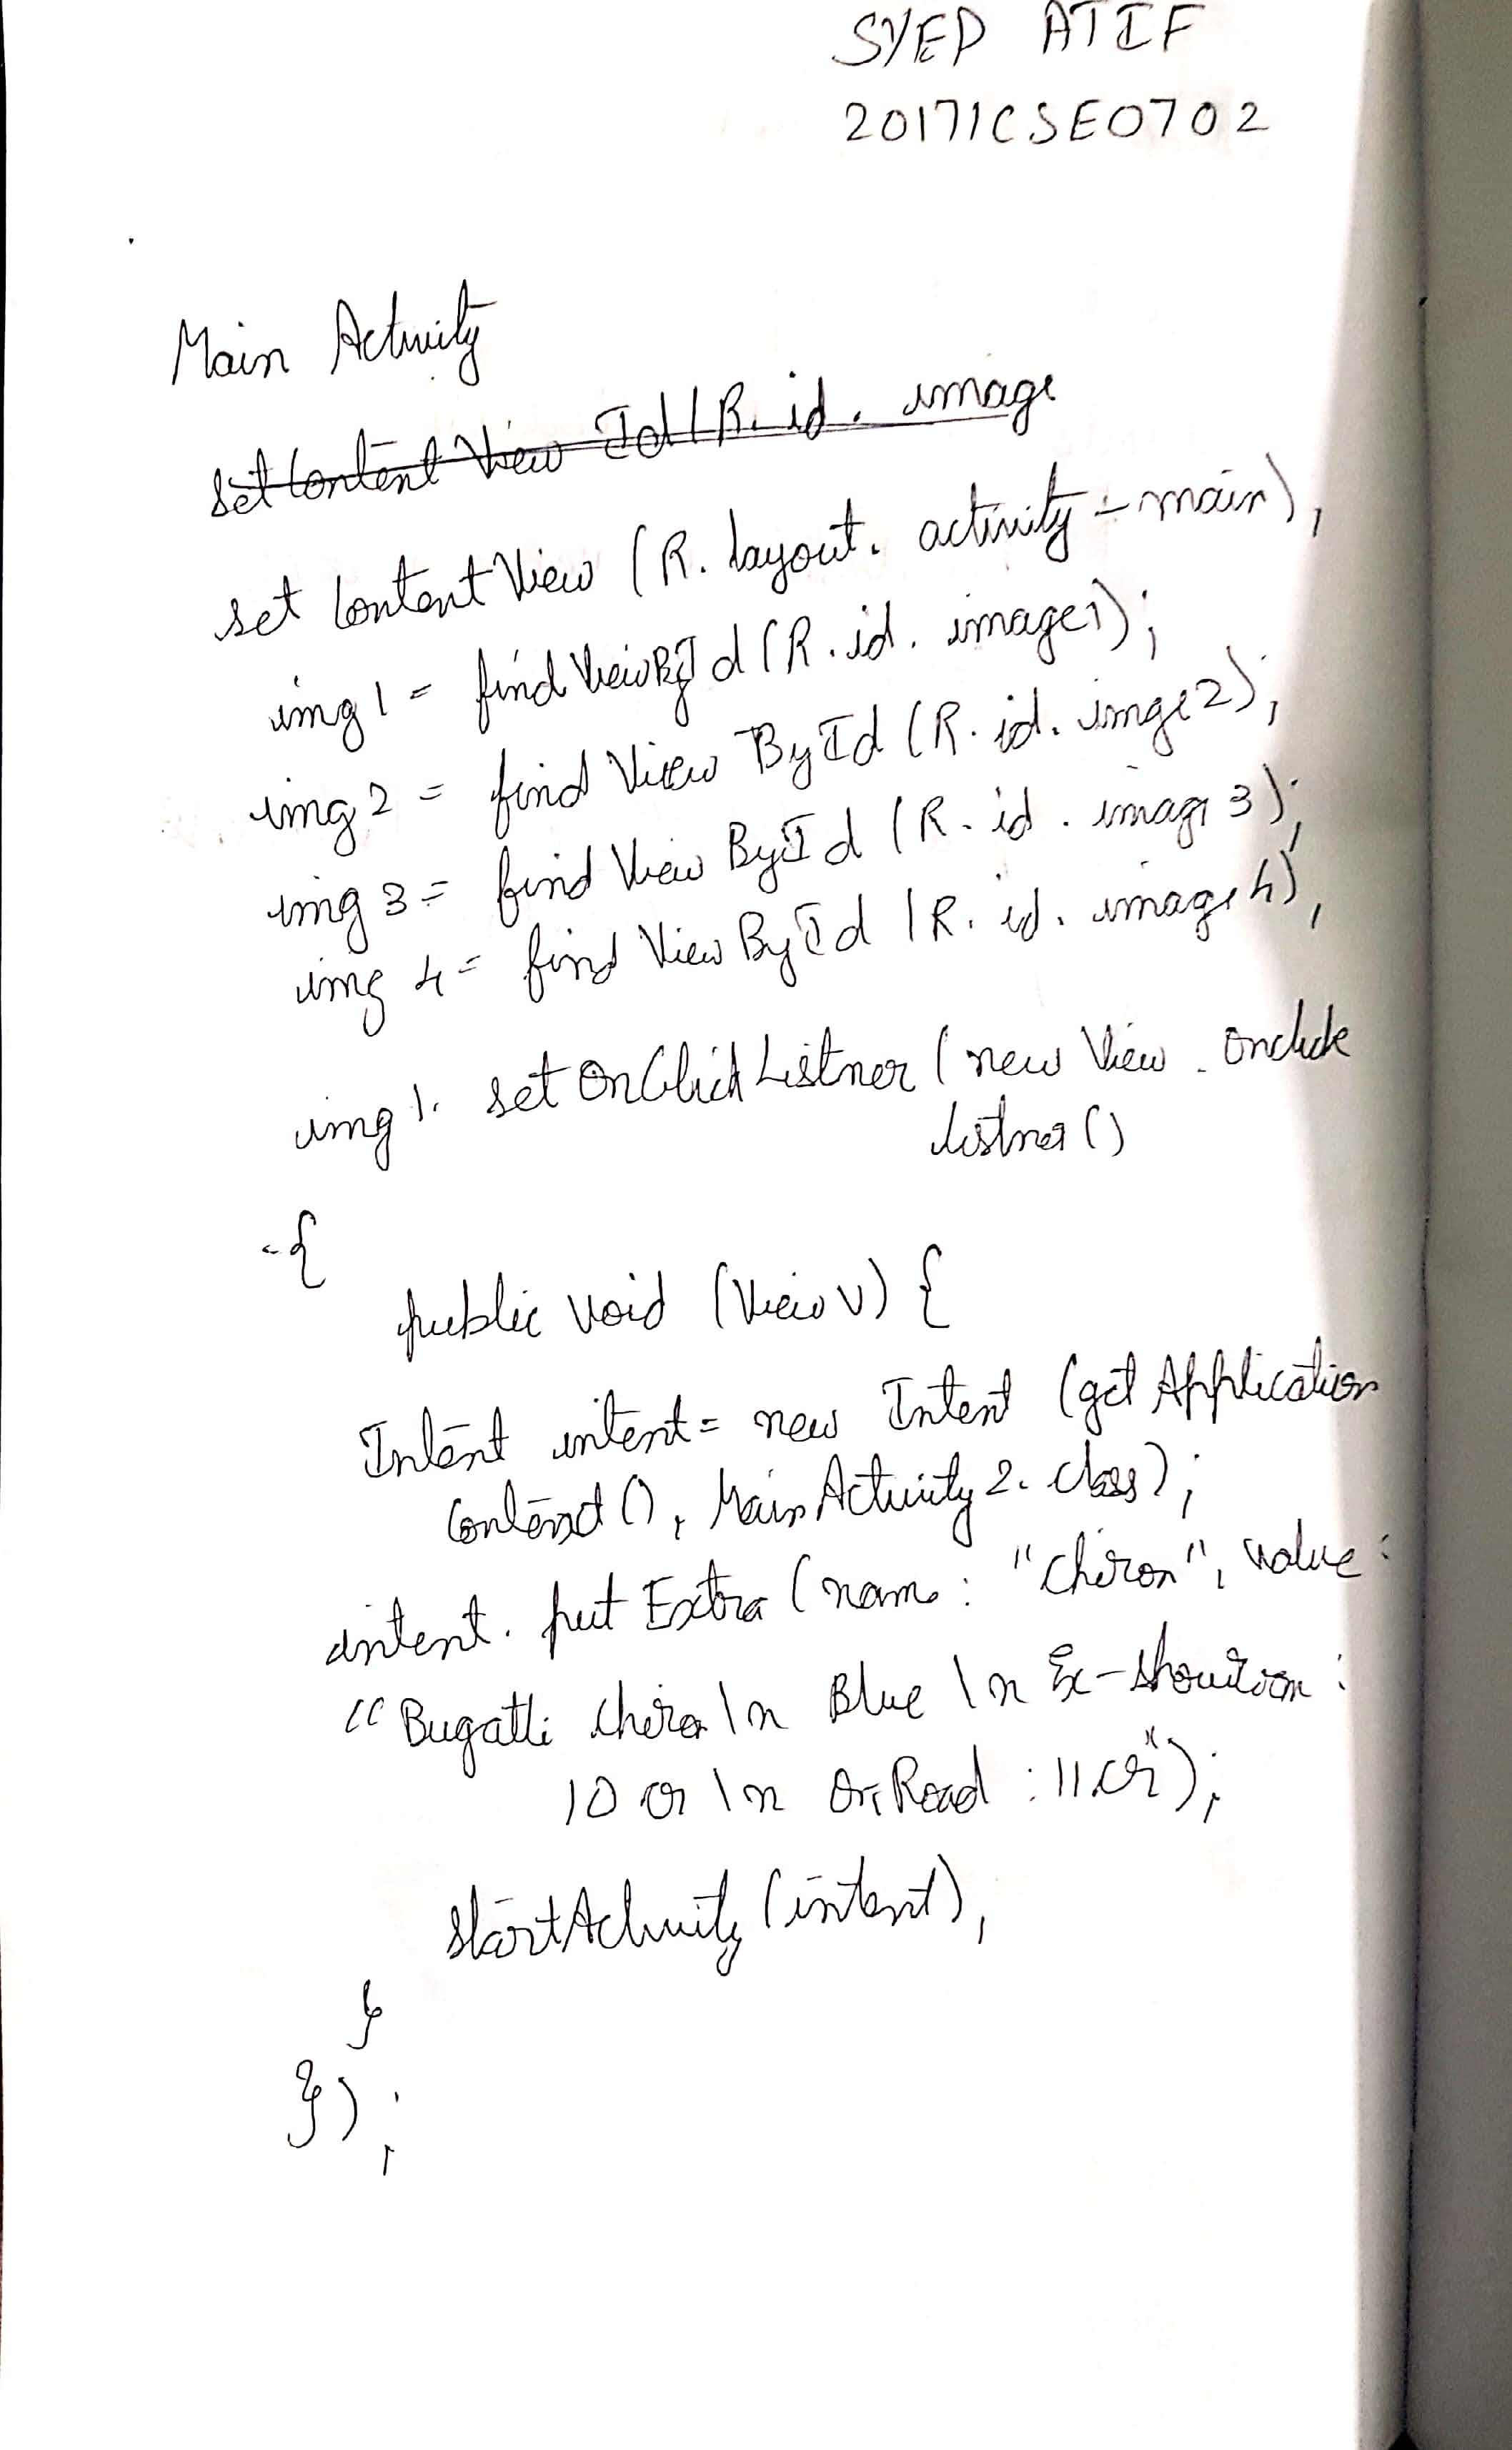 SYED ATIF
20171CSE0702
Main Activity
set Content View Id (R. id. image
set Content View (R. layout. activity - main),
img 1 = find View By I d (R. id. image1);
img 2 = find View By Id (R. id. imge 2);
img 3 = find View By I d (R. id. image 3);
img 4 = find View By I d (R. id. image 4),
img 1. set On Click Listner (new View. Onclick
listner ()
{
public void (View v) {
Intent intent = new Intent (get Application
Context (), Main Activity 2. class);
intent. put Extra (name : "Chiron", value :
"Bugatti chiro \n Blue \n Ex-showroom :
10 cr \n On Road : 11 cr");
start Activity (intent),
}
});